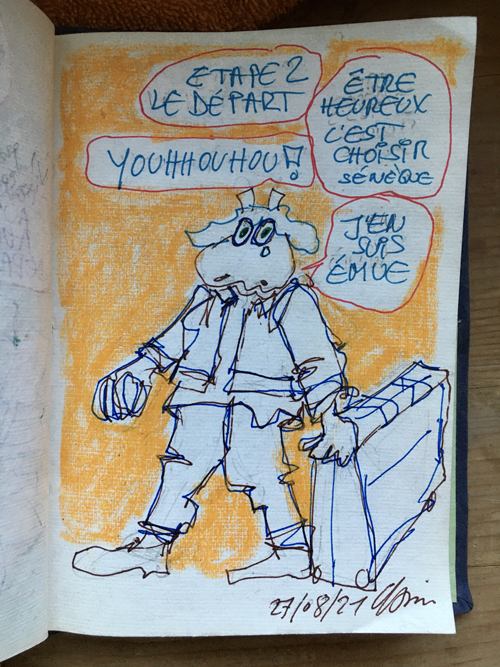 ETAPE 2
LE DÉPART
ÊTRE
HEUREUX
C'EST
CHOISIR
SÉNÈQUE
YOUHHOUHOU!
J'EN
SUIS
ÉMUE
27/08/21